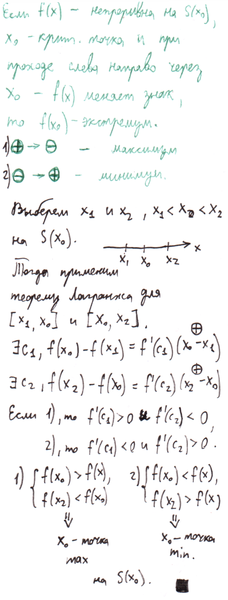 Если f(x) - непрерывна на S(x₀),
x₀ - крит. точка и при
проходе слева направо через
x₀ - f(x) меняет знак,
то f(x₀) - экстремум.
1) ⊕ → ⊖ - максимум
2) ⊖ → ⊕ - минимум.
Выберем x₁ и x₂, x₁ < x₀ < x₂
на S(x₀).
x₁ x₀ x₂ x
Тогда применим
теорему Лагранжа для
[x₁, x₀] и [x₀, x₂].
⊕
∃c₁, f(x₀) - f(x₁) = f'(c₁)(x₀ - x₁)
⊕
∃c₂, f(x₂) - f(x₀) = f'(c₂)(x₂ - x₀)
Если 1), то f'(c₁) > 0 и f'(c₂) < 0,
2), то f'(c₁) < 0 и f'(c₂) > 0.
1) { f(x₀) > f(x₁), 2) { f(x₀) < f(x₁),
f(x₂) < f(x₀) f(x₂) > f(x₀)
⇓ ⇓
x₀ - точка x₀ - точка
max min.
на S(x₀). ■